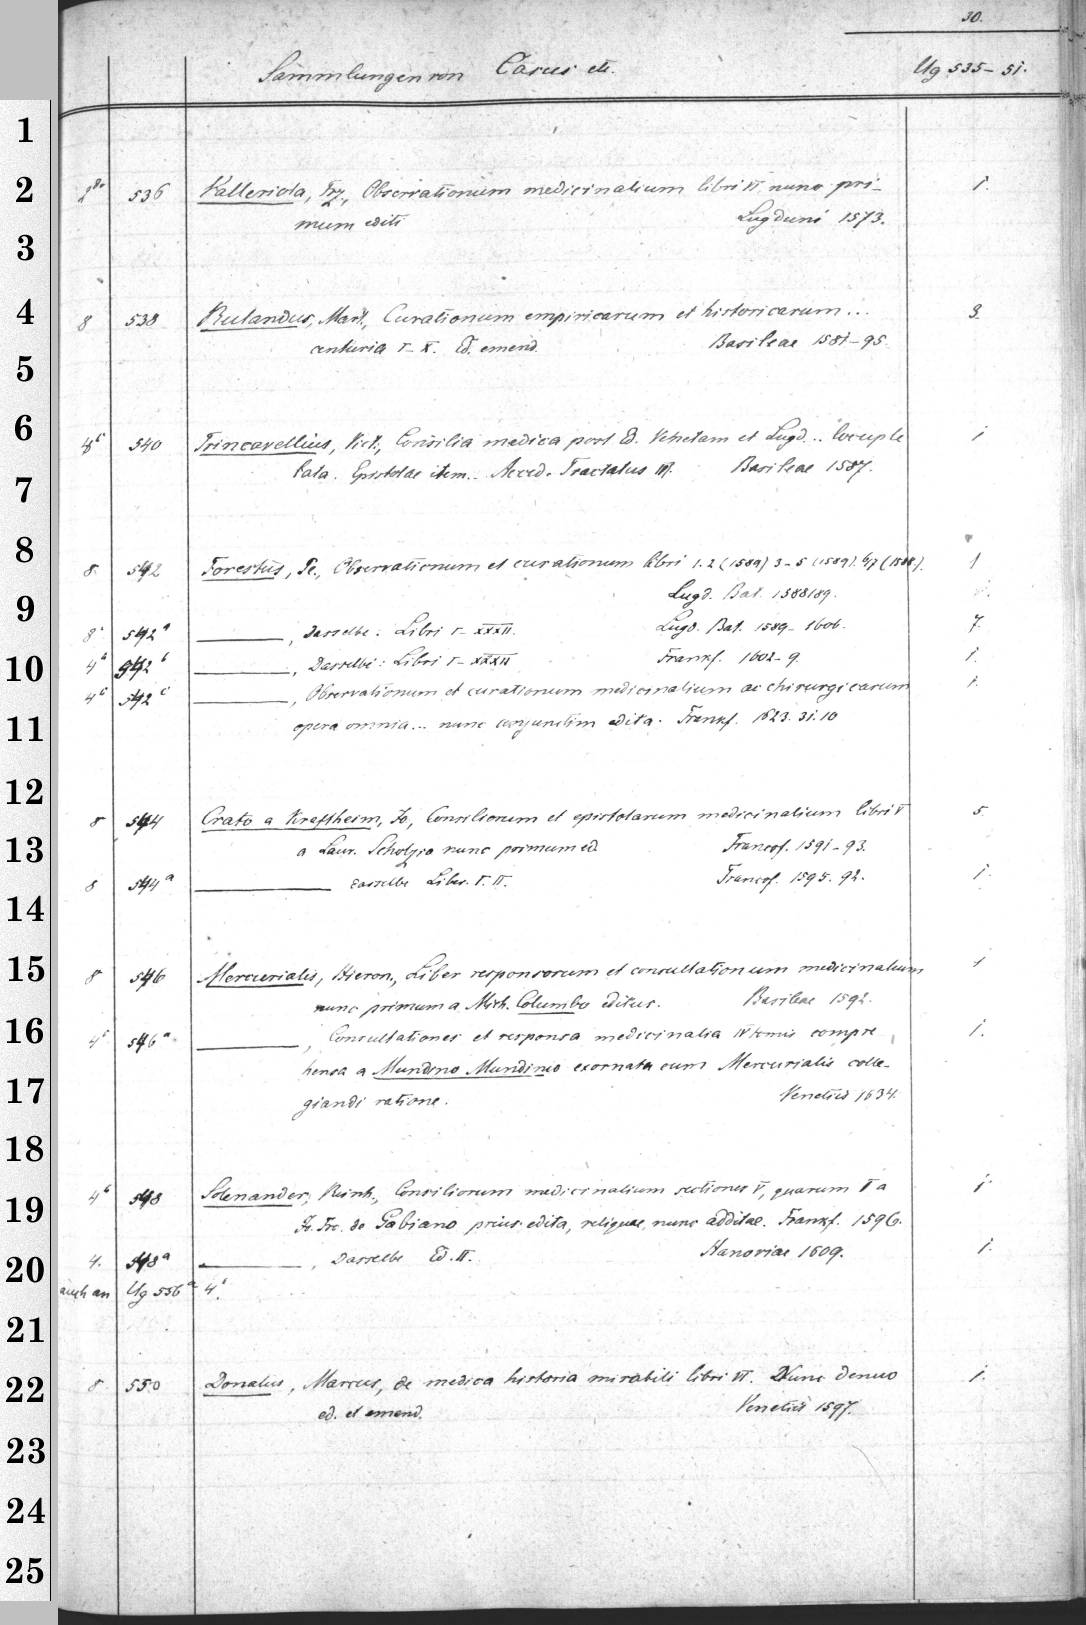 30.
Sammlungen von Casus etc. Ug 535-51.
1
2 536 Valleriola, Frz., Observationum medicinalium libri VI, nunc pri- 1.
mum editi Lugduni 1573.
3
4 8 538 Rulandus, Mart., Curationum empiricarum et historicarum... 3.
centuria I-X. Ed. emend. Basileae 1581-95.
5
6 540 Trincavellius, Vict., Consilia medica post Ed. Venetam et Lugd... locuple 1
tata. Epistolae item.. Acced. Tractatus III. Basileae 1587.
7
8 8. 542 Forestus, Pe., Observationum et curationum libri 1.2 (1589) 3-5 (1589). 6/7 (1588). 1
Lugd. Bat. 1588/89.
9
8° 542a ———, Dasselbe: Libri I-XXXII. Lugd. Bat. 1589-1606. 7.
10 4° 542b ———, Dasselbe: Libri I-XXXII Frankf. 1602-9. 1.
4° 542c ———, Observationum et curationum medicinalium ac chirurgicarum 1.
11 opera omnia... nunc conjunctim edita. Frankf. 1623. 31. 10
12
8 544 Crato a Kraftheim, Jo., Consiliorum et epistolarum medicinalium libri V 5.
13 a Laur. Scholzio nunc primum ed Francof. 1591-93.
8 544a ——— dasselbe Liber. I. II. Francof. 1595. 92. 1.
14
15 8 546 Mercurialis, Hieron., Liber responsorum et consultationum medicinalium 1
nunc primum a Mich. Columbo editus. Basileae 1592.
16 4° 546a ———, Consultationes et responsa medicinalia IV tomis compre 1.
hensa a Mundino Mundinio exornata cum Mercurialis colle-
17 giandi ratione. Venetiis 1634.
18
19 4° 548 Solenander, Reinh., Consiliorum medicinalium sectiones V, quarum I a 1
Jo. Frc. de Gabiano prius edita, reliquae nunc additae. Frankf. 1596.
20 4. 548a ———, Dasselbe Ed. II. Hanoviae 1609. 1.
auch an Ug 556a 4°.
21
22 8 550 Donatus, Marcus, de medica historia mirabili libri VI. Nunc denuo 1.
ed. et emend. Venetiis 1597.
23
24
25